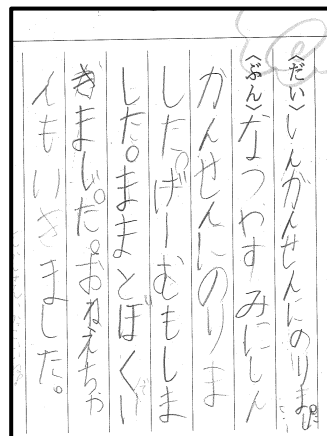 〈だい〉しんかんせんにのりました
〈ぶん〉なつやすみにしん
かんせんにのりま
した。げーむもしま
した。ままとぼくい
きました。おねえちゃ
んもいきました。